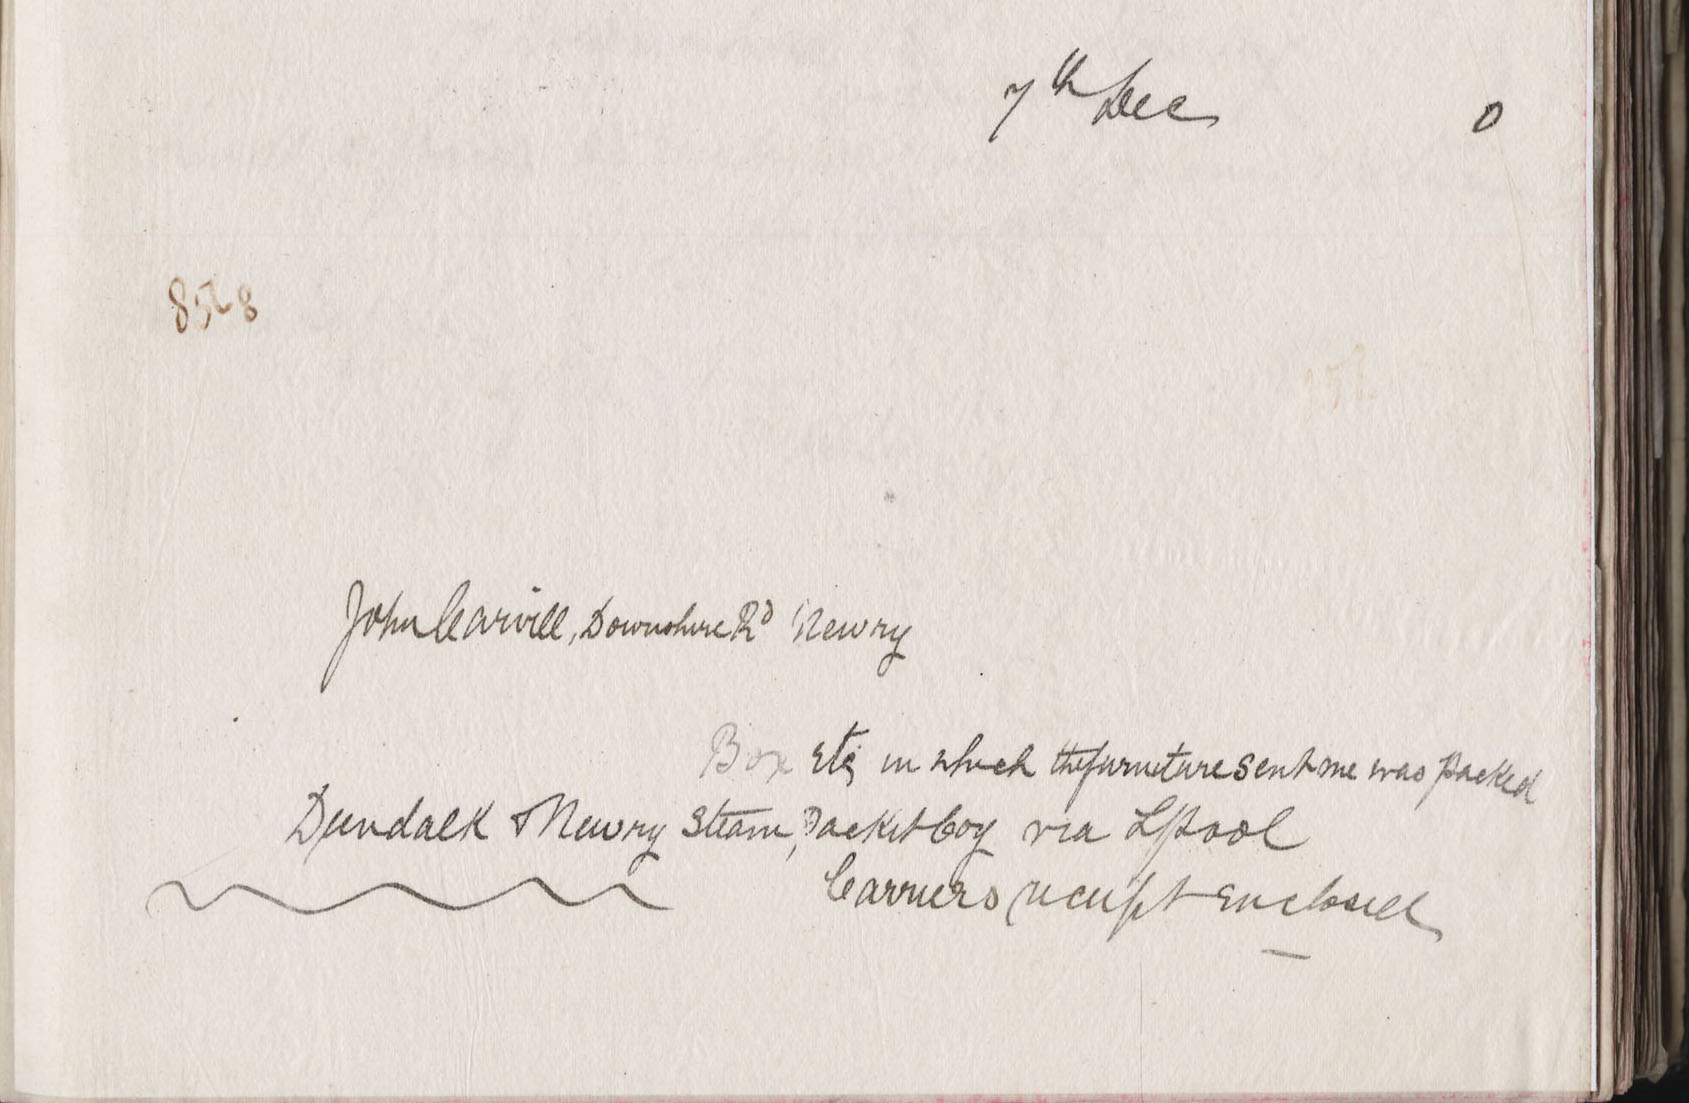 7th Dec 0
8528
John Carvill, Downshire Rd Newry
Box etc, in which the furniture sent me was packed
Dundalk & Newry Steam Packet Coy via Lpool
Carriers receipt enclosed